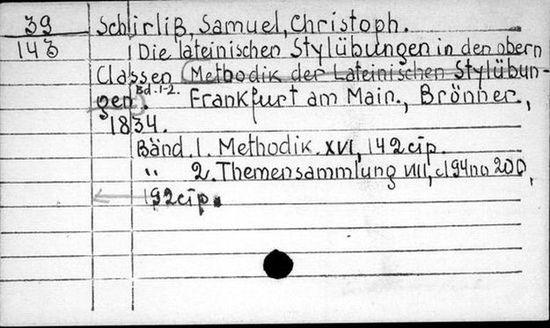 39 Schirliß, Samuel, Christoph.
143 Die lateinischen Stylübungen in den obern
Classen (Methodik der Lateinischen Stylübun-
gen). Bd. 1-2. Frankfurt am Main., Brönner.,
1834.
Bänd. 1. Methodik. XVI, 142 стр.
" 2. Themensammlung VIII, с 194 по 200,
192 стр.